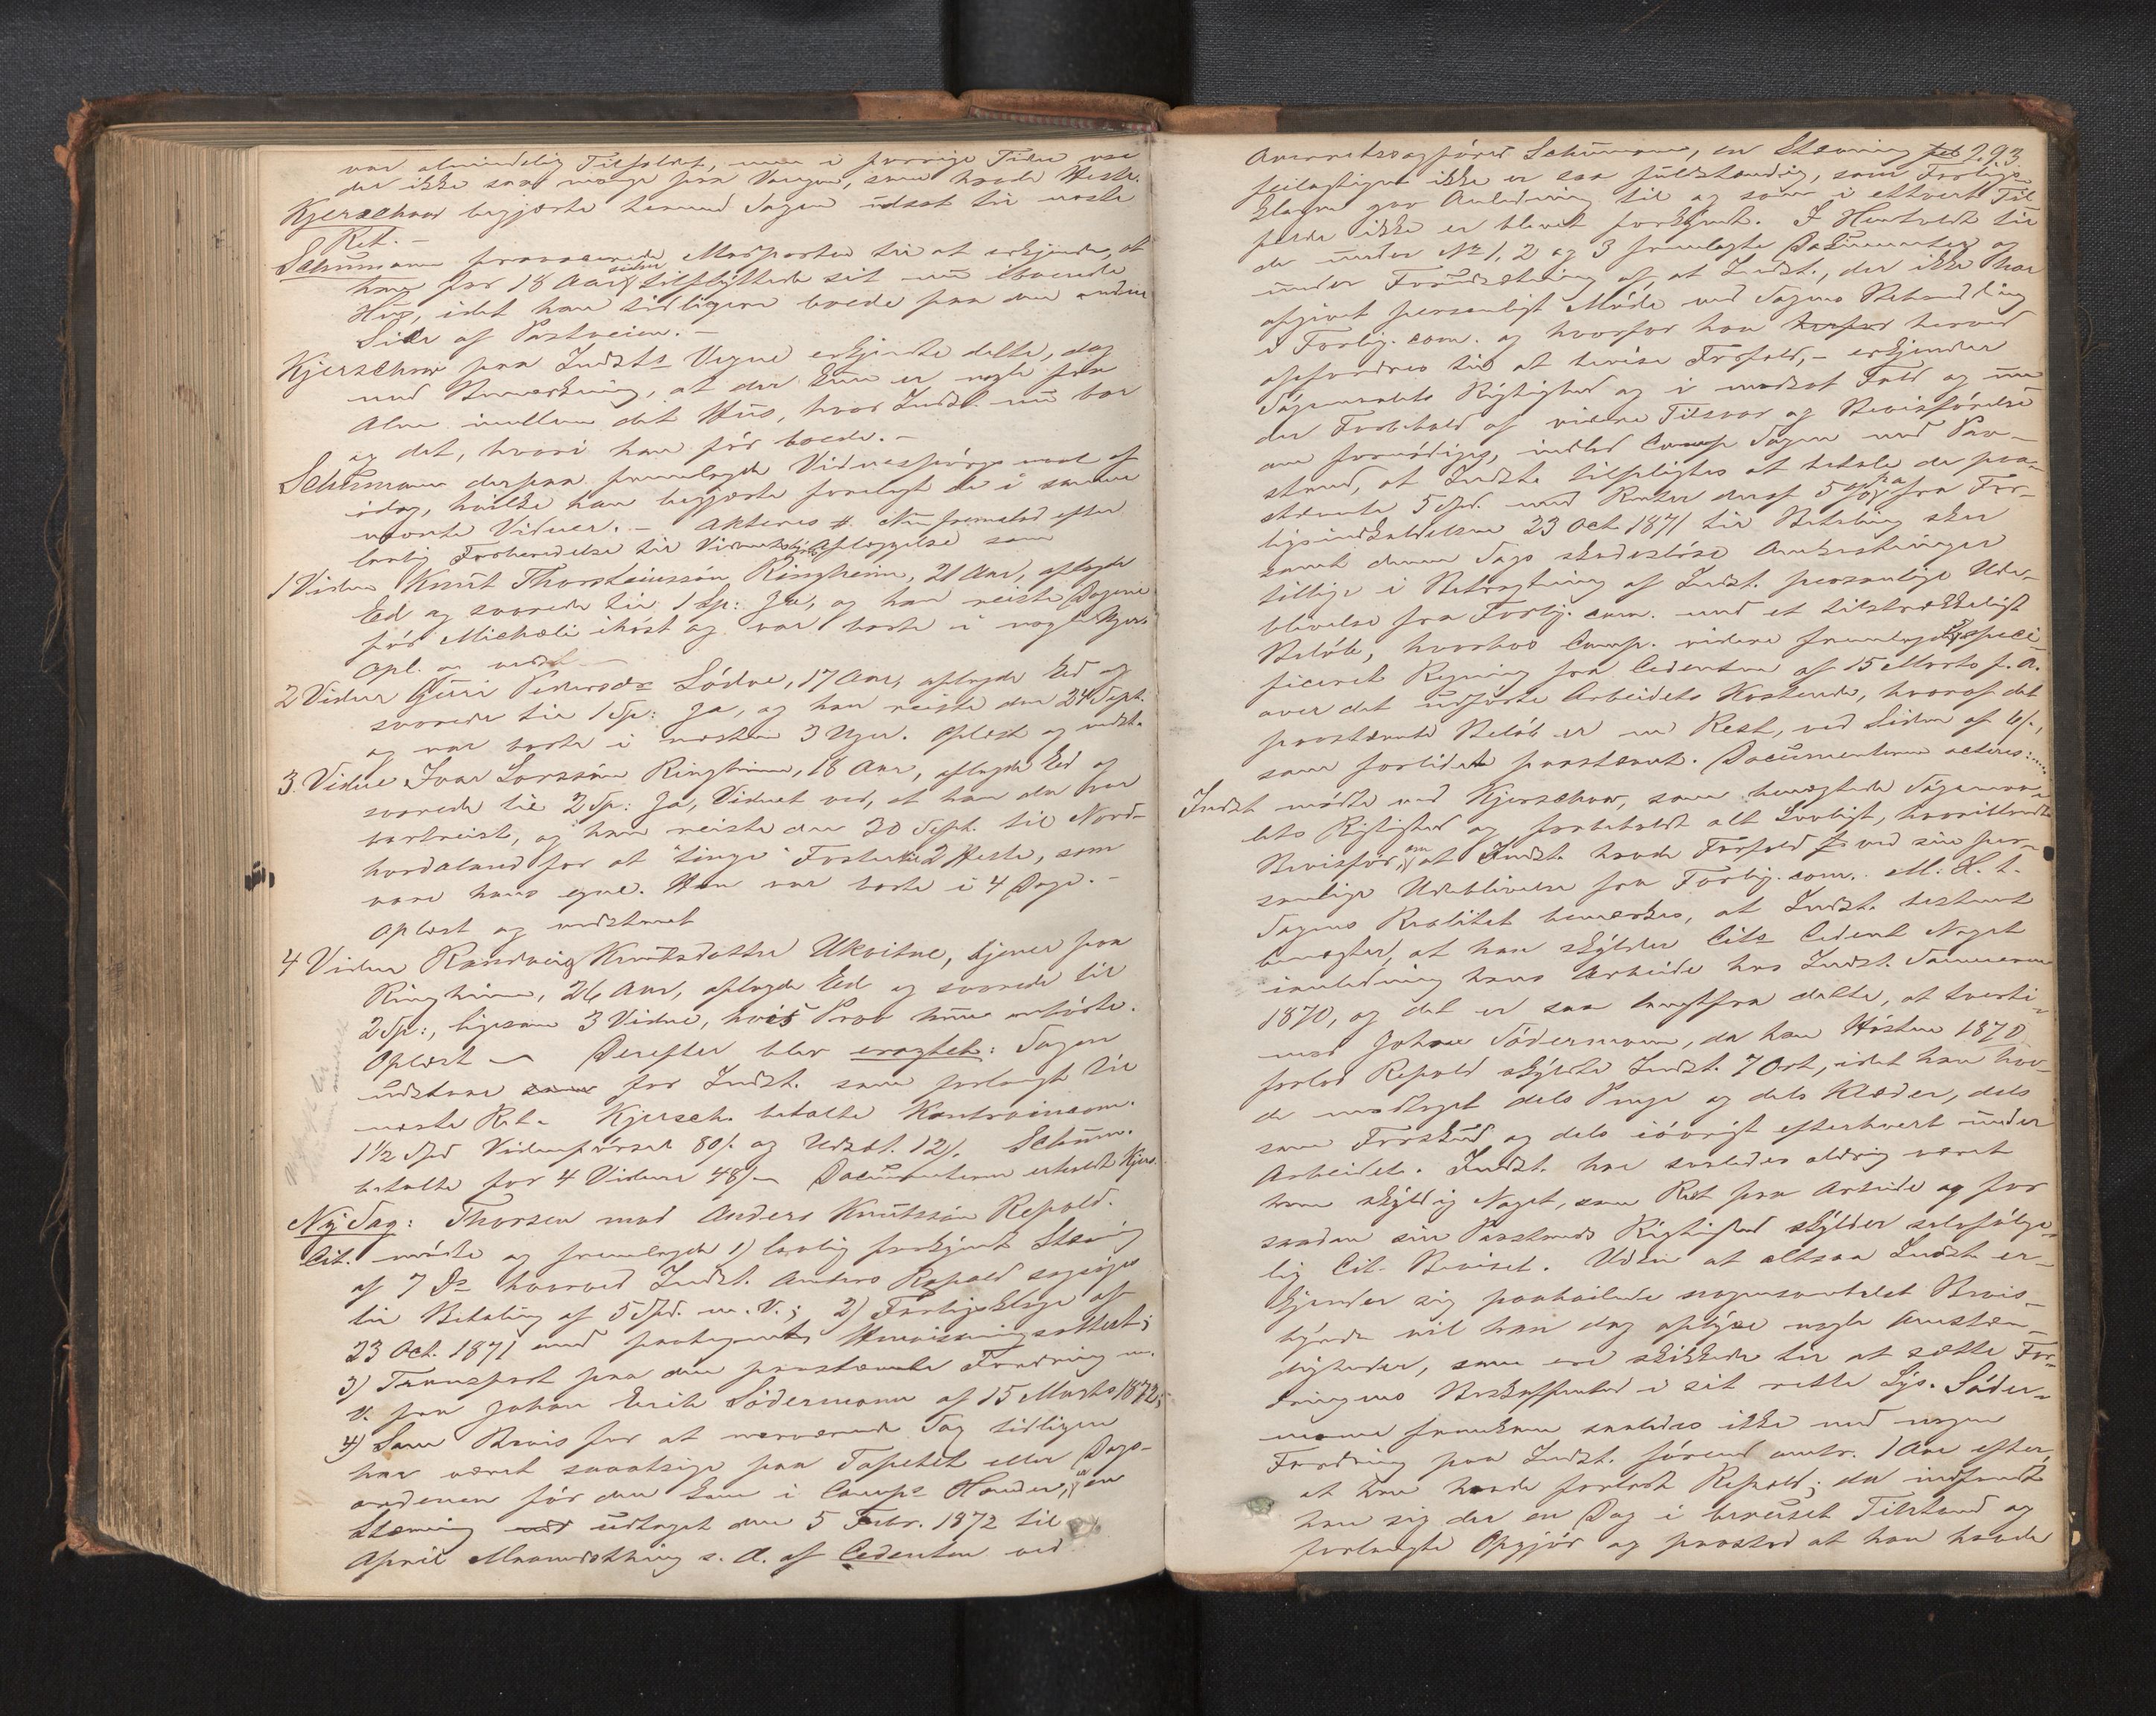 var almindelig Tilfældet, men i forrige Tider var
der ikke saa mange paa Vangen, som havde Heste.
Kjerschow begjærte hermed Sagen udsat til næste
Ret. –
Schumann provocerede Modparten til at erkjende, at
han for 18 Aar siden tilflyttede sit nu iboende
Hus, idet han tidligere boede paa den anden
Side af Postveien. –
Kjerschow paa Indst.s Vegne erkjendte dette, dog
med Bemærkning, at der kun er nogle faa
Alne imellem det Hus, hvor Indst. nu bor
og det, hvori han før boede. –
Schumann derpaa fremlagde Vidnespørgsmaal af
idag, hvilke han begjærte forelagt de i samme
nævnte Vidner. – Akteres #. Nu fremstod efter
lovlig Forberedelse til Vidnesbyrds Aflæggelse som
1 Vidne Knut Thorsteinssøn Ringheim, 21 Aar, aflagde
Ed og svarede til 1 Sp: Ja, og han reiste Dagene
før Michaeli ihøst og var borte i nogle Uger.
Opl. og vedst. –
2 Vidne Guri Pedersdr Lødve, 17 Aar, aflagde Ed og
svarede til 1 Sp: Ja, og han reiste den 24 Sept.
og var borte i næsten 3 Uger. Oplæst og vedst.
3. Vidne Ivar Larssøn Ringheim, 18 Aar, aflagde Ed og
svarede til 2 Sp: Ja, Vidnet ved, at han da var
bortreist, og han reiste den 30 Sept. til Nord-
hordaland for at "tinge" Foster til 2 Heste, som
vare hans egne. Han var borte i 4 Dage. –
Oplæst og vedstaaet
4 Vidne Randveig Knutsdatter Ukvitne, tjener paa
Ringheim, 26 Aar, aflagde Ed og svarede til
2 Sp:, ligesom 3 Vidne, hvis Prov hun anhørte.
Oplæst – Derefter blev eragtet: Sagen
udstaar for Indst. som forlangt til
næste Ret. Kjersch. betalte Kontravincom.
1½ Spd Vidneførsel 80/. og Udsæt. 12/. Schum.
betalte for 4 Vidner 48/– Documenterne erholdt Kjers.
Ny Sag: Thorsen mod Anders Knutssøn Repald.
Cit. mødte og fremlagde 1) lovlig forkyndt Stævning
af 7 Ds hvorved Indst. Anders Repald sagsøges
til Betaling af 5 Spd. m. V.; 2) Forligsklage af
23 Oct. 1871 med paategnet Henvisningsattest;
3) Transport paa den paastævnte Fordring m.
V. fra Johan Erik Södermann af 15 Marts 1872;
4) Som Bevis for at nærværende Sag tidligere
har været saaatsige paa Tapetet eller Dags-
ordenen før den kom i Comp.s Hænder, en
Stævning udtaget den 5 Febr. 1872 til
April Maanedsthing s. A. af Cedenten ved
293.
Overretssagfører Schumann, en Stævning
feilagtigen ikke er saa fuldstændig, som Forligs-
klagen gav Anledning til og som i ethvert Til-
fælde ikke er blevet forkyndt. I Henhold til
de under No 1, 2 og 3 fremlagte Documenter og
under Forudsætning af, at Indst., der ikke har
afgivet personligt Møde ved Sagens Behandling
i Forlig. com. og hvorfor han herved
opfordres til at bevise Forfald, – erkjender
Søgsmaalets Rigtighed og i modsat Fald og under
Forbehold af videre Tilsvar og Bevisførelse
om fornødiges, indlod Comp. Sagen med Paa-
stand, at Indste tilpligtes at betale de paa-
stævnte 5 Spd. med Renter deraf 5 pCt p. a. fra For-
ligsindkaldelsen 23 Oct. 1871 til Betaling sker
samt denne Sags skadesløse Omkostninger
tillige i Betragtning af Indst. personlige Ude-
blivelse fra Forlig. com. med et tilstrækkeligt
Beløb, hvorhos Comp. videre fremlagde speci-
ficeret Regning fra Cedenten af 15 Marts f. A.
over det udførte Arbeidets Kostende, hvoraf det
paastævnte Beløb er en Rest, ved Siden af 6/.,
som forlidet paastævnt. Documenterne acteres:....
Indst mødte ved Kjerschow, som benægtede Søgsmaa-
lets Rigtighed og forbeholdt alt Lovligt, hvoriblandt
Bevisfør. om at Indst. havde Forfald ved sin per-
sonlige Udeblivelse fra Forlig. com. M. H. t.
Sagens Realitet bemærkes, at Indst. bestemt
benægter, at han skylder Cits Cedent Noget
i Anledning hans Arbeide hos Indst. Sommeren
1870, og det er saa langtfra dette, at tverti-
mod Johan Södermann, da han Høsten 1870
forlod Repald skyldte Indst. 7 Ort, idet han hav-
de modtaget dels Penge og dels Klæder, dels
som Forskud og dels iøvrigt efterhvert under
Arbeidet. Indst. har saaledes aldrig været
ham skyldig Noget, som Rest for Arbeide og for
saadan sin Paastands Rigtighed skylder selvfølge-
lig Cit. Beviset. Uden at altsaa Indst er-
kjender sig paahvilende nogensomhelst Bevis-
byrde vil han dog oplyse nogle Omstæn-
digheder, som ere skikkede til at sætte For-
dringens Beskaffenhed i sit rette Lys. Söder-
mann fremkom saaledes ikke med nogen
Fordring paa Indst. førend omtr. 1 Aar efter,
at han havde forladt Repald; da indfandt
han sig der en Dag i beruset Tilstand og
forlangte Opgjør og paastod at han havde